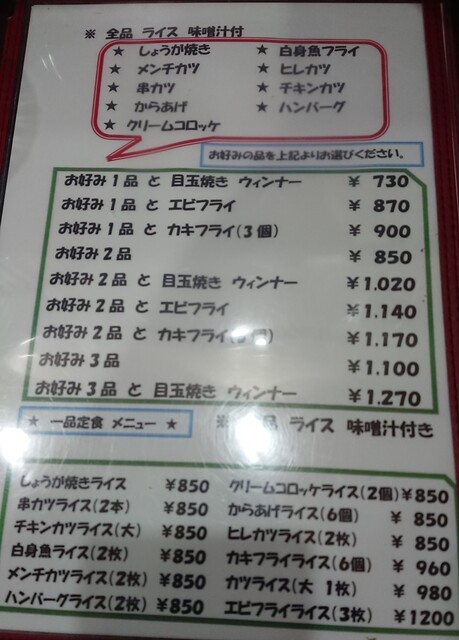 ※ 全品 ライス 味噌汁付
★ しょうが焼き ★ 白身魚フライ
★ メンチカツ ★ ヒレカツ
★ 串カツ ★ チキンカツ
★ からあげ ★ ハンバーグ
★ クリームコロッケ
お好みの品を上記よりお選びください。
お好み1品 と 目玉焼き ウィンナー ¥ 730
お好み1品 と エビフライ ¥ 870
お好み1品 と カキフライ(3個) ¥ 900
お好み2品 ¥ 850
お好み2品 と 目玉焼き ウィンナー ¥1,020
お好み2品 と エビフライ ¥1,140
お好み2品 と カキフライ( 個) ¥1,170
お好み3品 ¥1,100
お好み3品 と 目玉焼き ウィンナー ¥1,270
★ 一品定食 メニュー ★ ※ 品 ライス 味噌汁付き
しょうが焼きライス ¥850 クリームコロッケライス(2個) ¥850
串カツライス(2本) ¥850 からあげライス(6個) ¥ 850
チキンカツライス(大) ¥850 ヒレカツライス(2枚) ¥ 850
白身魚ライス(2枚) ¥850 カキフライライス(6個) ¥ 960
メンチカツライス(2枚) ¥850 カツライス(大 1枚) ¥ 980
ハンバーグライス(2枚) ¥850 エビフライライス(3枚) ¥1200